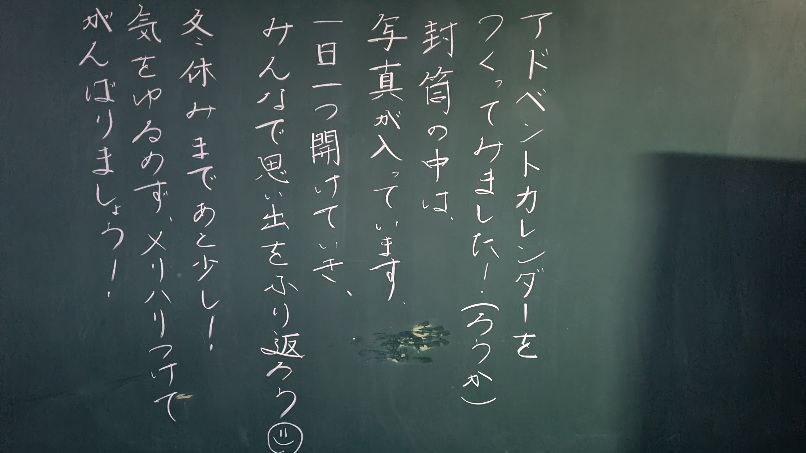 アドベントカレンダーを
つくってみました！(ろうか)
封筒の中は、
写真が入っています。
一日一つ開けていき、
みんなで思い出をふり返ろう☺
冬休みまであと少し！
気をゆるめず、メリハリつけて
がんばりましょう！